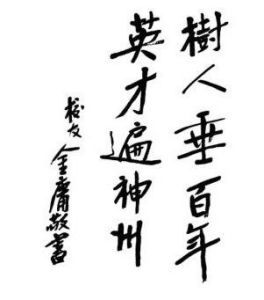 樹人垂百年
英才遍神州
校友 金庸敬書